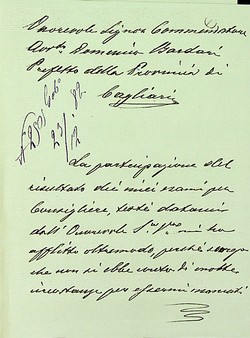 Onorevole Signor Commendatore
Avv.to Domenico Bardari
Prefetto della Provincia di
Cagliari
23/12
La partecipazione del
risultato dei miei esami per
Consigliere, testé datami
dall'Onorevole S. mi ha
afflitto oltremodo, perché scorgo
che non si ebbe di molte
circostanze per essermi mancati